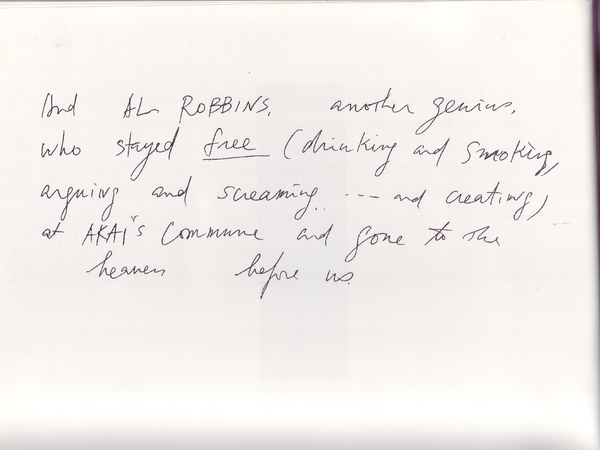 And AL ROBBINS, another genius,
who stayed free (drinking and smoking,
arguing and screaming ... --- and creating)
at AKAI's Commune and gone to the
heaven before us.